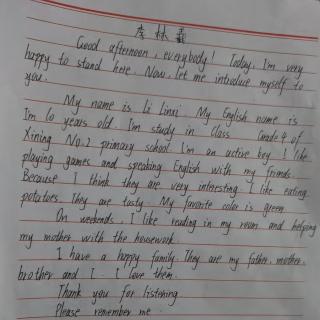 李林羲
Good afternoon, everybody! Today, I'm very
happy to stand here. Now, let me introduce myself to
you.
My name is Li Linxi. My English name is
I'm 10 years old. I'm study in Class Grade 4 of
Xining No.2 primary school. I'm an active boy. I like
playing games and speaking English with my friends.
Because I think they are very interesting. I like eating
potatoes. They are tasty. My favorite color is green.
On weekends, I like reading in my room and helping
my mother with the housework.
I have a happy family. They are my father, mother,
brother and I. I love them.
Thank you for listening.
Please remember me.